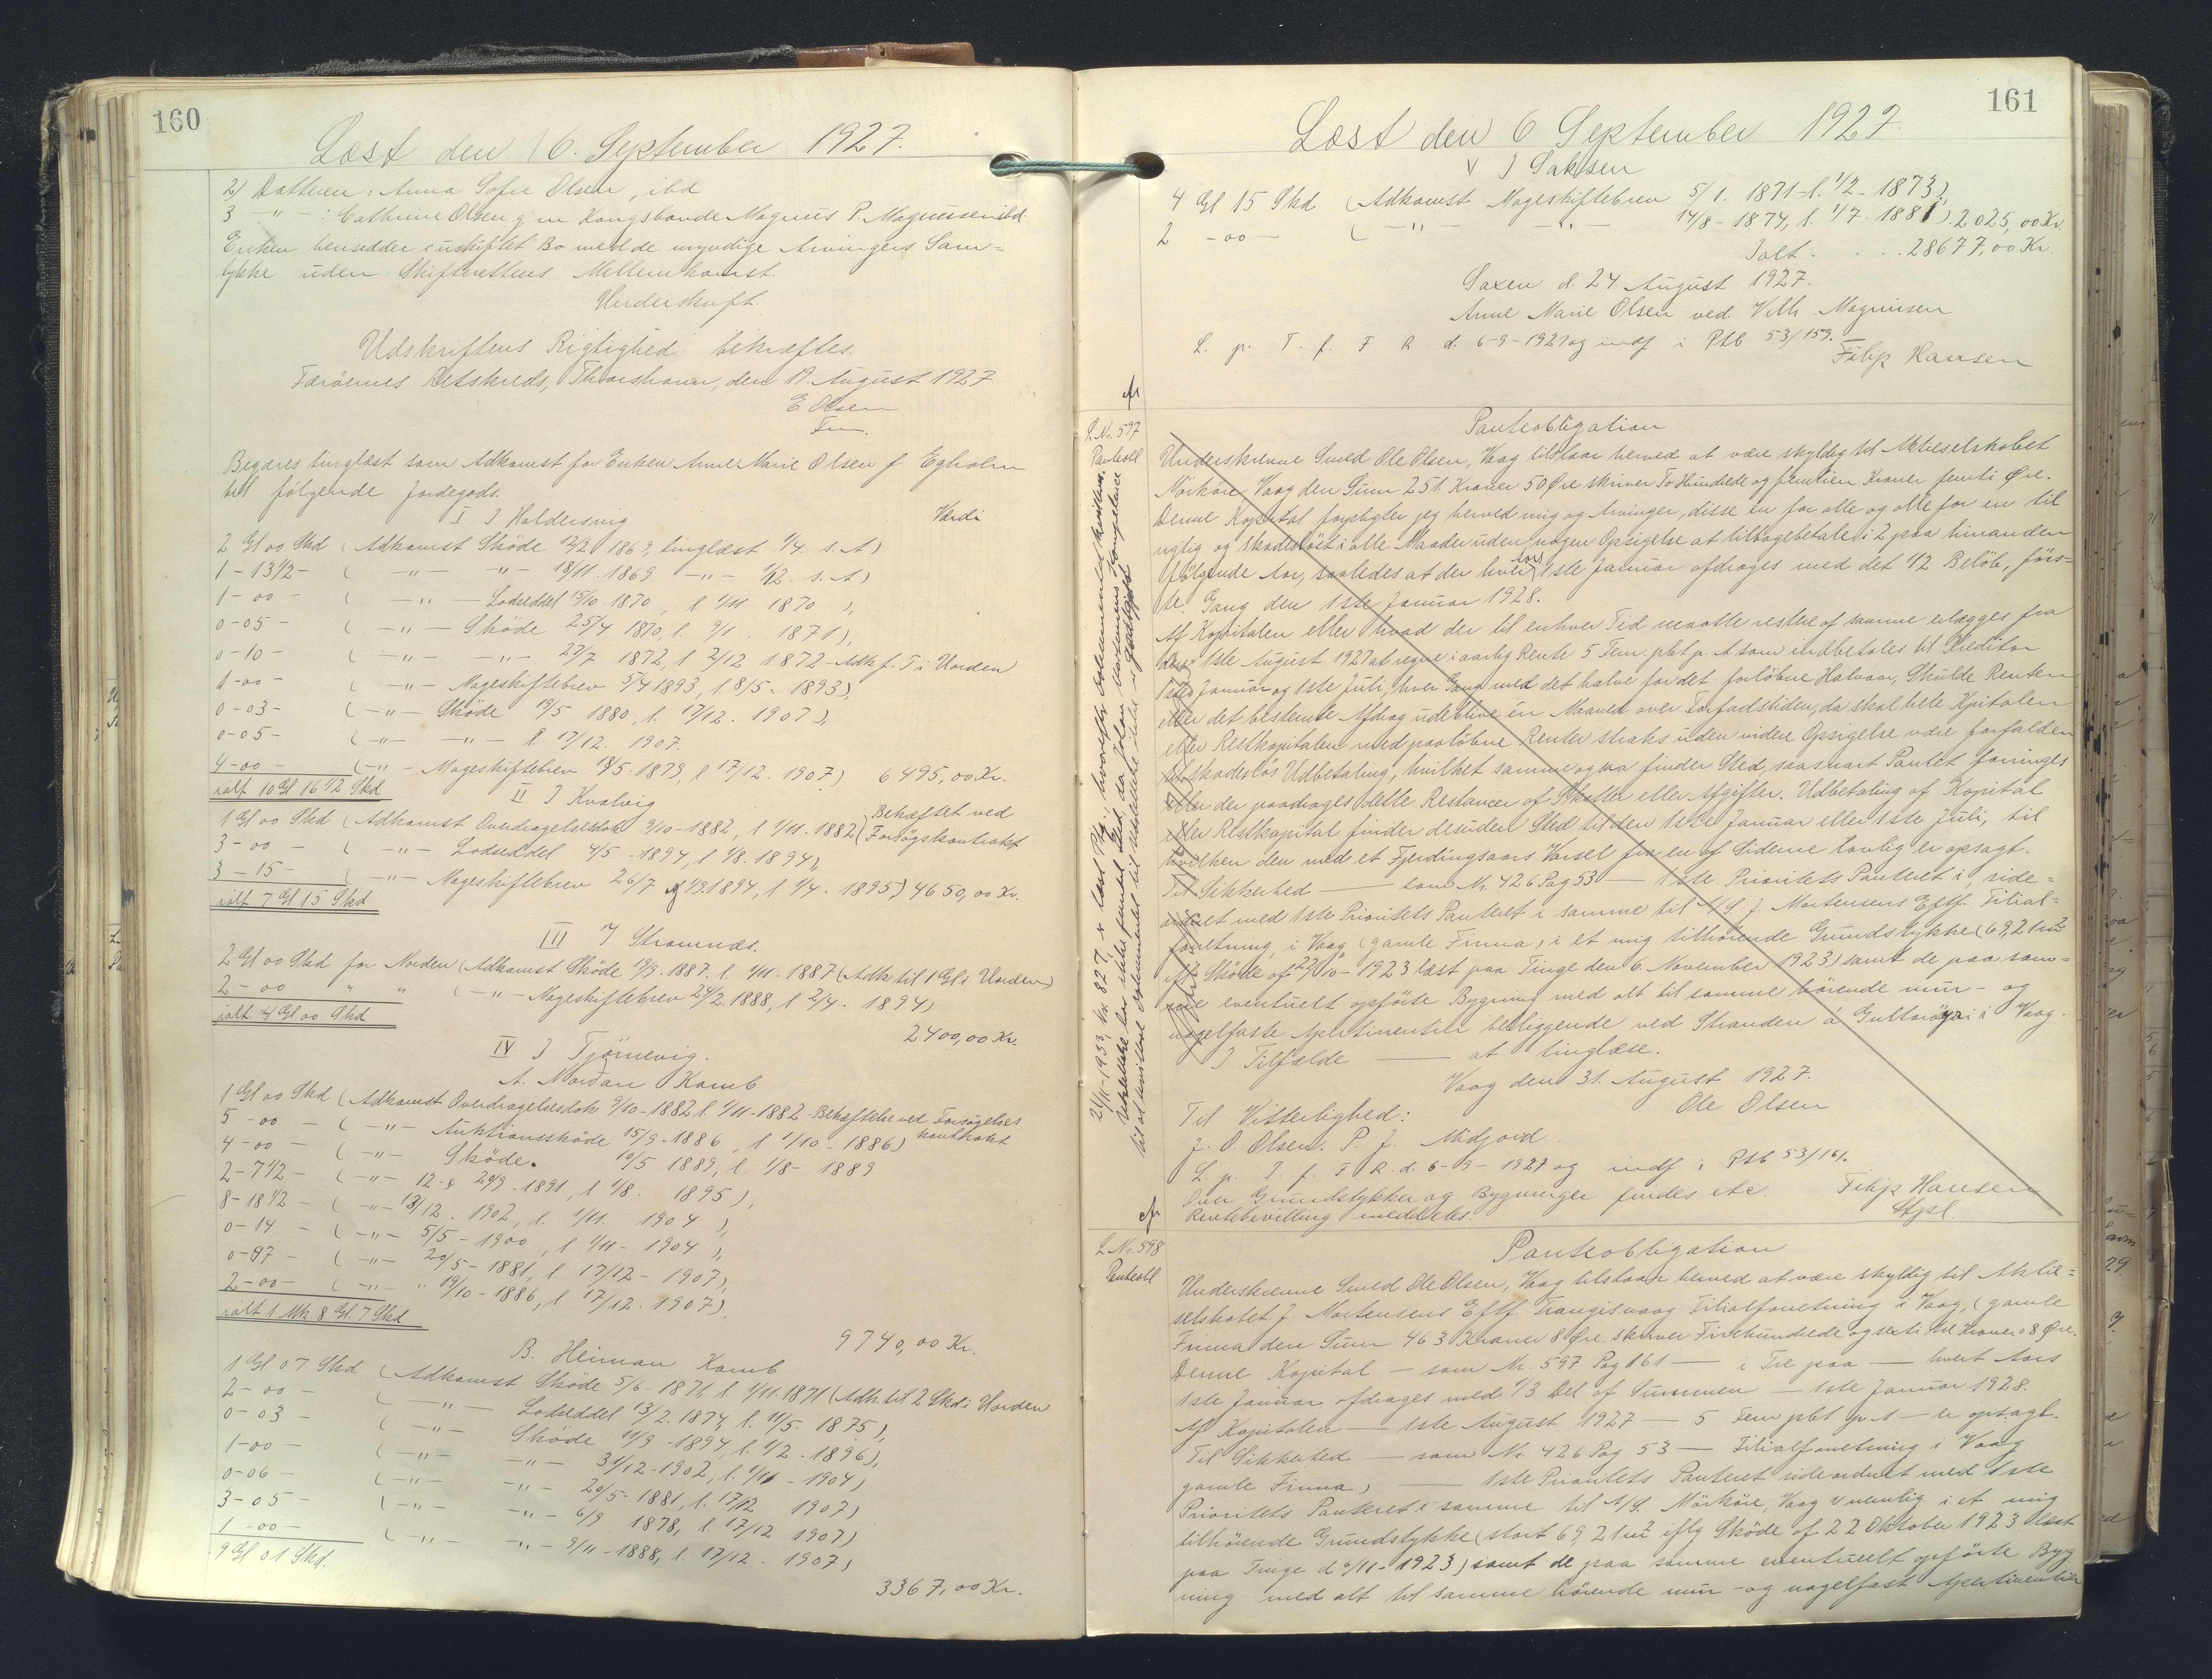 160
Læst den 6. September 1927.
2) Datteren: Anna Sofie Olsen, ibd
3 -"- : Cathrine Olsen g. m Kongsbonde Magnus P. Magnussen ibd.
Enken hensidder i uskiftet Bo med de myndige Arvingers Sam-
tykke uden Skifterettens Mellemkomst.
Underskrift.
Udskriftens Rigtighed bekræftes.
Færöernes Retskreds, Thorshavn, den 17. August 1927.
E Olsen
Fm.
Begæres tinglæst som Adkomst for Enken Anne Marie Olsen f Egholm
til følgende Jordegods.
I I Haldersvig
Værdi
2 Gl 00 Skd (Adkomst Sköde 12/2 1869, tinglæst 9/4. s. A)
1-13½- ( -"- -"- 18/11. 1869 -"- 1/12. s. A)
1-00- ( -"- Lodseddel 15/10. 1870, l 1/11 1870),
0-05- ( -"- Sköde 25/4 1870, l. 9/1. 1871),
0-10- ( -"- -"- 27/7 1872, l 2/12 1872 - Adk f. T. i Uorden
1-00- ( -"- Mageskiftebrev 5/4 1893, l 8/5. 1893),
0-03- ( -"- Sköde 19/5 1880, l. 17/12. 1907),
0-05- ( -"- -"- l. 17/12. 1907.
4-00- ( -"- Mageskiftebrev 18/5. 1879, l 17/12. 1907) 6495,00 Kr.
ialt 10 Gl 16½ Skd
II I Kvalvig
1 Gl 00 Skd (Adkomst Overdragelsesdok 9/10-1882, l 1/11. 1882 (Behæftet ved Forsögskontrakt
3-00- ( -"- Lodseddel 4/5-1894, l 1/8. 1894),
3-15- ( -"- Mageskiftebrev 26/7 & 1/9. 1894, l 1/4. 1895) 4650,00 Kr.
ialt 7 Gl 15 Skd
III I Strømnæs.
2 Gl 00 Skd for Norden (Adkomst Sköde 19/9. 1887. l. 1/11. 1887 (Adk til 1 Gl i Uorden)
2-00 " " ( -"- Mageskiftebrev 24/2. 1888, l 2/4. 1894)
ialt 4 Gl 00 Skd
2400,00 Kr.
IV I Tjörnevig.
A. Nordan Kamb
1 Gl 00 Skd (Adkomst Overdragelsesdok 9/10-1882 l. 1/11-1882 - Behæftelse ved Forsögelses kontrakt
5-00- ( -"- Auktionssköde 15/9-1886, l 1/10-1886)
4-00- ( -"- Sköde. 19/5 1889, l. 1/8-1889
2-7½- ( -"- 12 & 20/9-1891, l 1/8. 1895),
8-18½- ( -"- 13/12. 1902, l. 1/11. 1904),
0-14- ( -"- 5/5-1900, l 1/11-1904),
0-07- ( -"- 20/5-1881, l 17/12-1907),
2-00- ( -"- " 19/10-1886, l 17/12. 1907),
ialt 1 Mk 8 Gl. 7 Skd
9740,00 Kr.
B. Heiman Kamb
1 Gl 07 Skd (Adkomst Sköde 5/6-1871, l 1/11. 1871 (Adk. til 2 Skd i Uorden
2-00- ( -"- Lodseddel 13/2. 1874, l. 11/5. 1875),
0-03- ( -"- Sköde 11/9-1894, l. 1/2-1896),
1-00- ( -"- -"- 31/12-1902, l. 1/11-1904)
0-06- ( -"- -"- 20/5-1881, l. 17/12 1907)
3-05- ( -"- -"- 6/9 1878, l 17/12 1907)
1-00- ( -"- -"- 9/11-1888, l 17/12. 1907)
9 Gl 01 Skd.
3367,00 Kr.
161
Læst den 6 September 1927.
V I Saksen
4 Gl 15 Skd (Adkomst Mageskiftebrev 5/1. 1871-l. 1/2-1873),
2-00- ( -"- -"- 14/8-1874, l. 1/7. 1881) 2025,00 Kr.
Ialt . . . 28677,00 Kr.
Saxen d. 24 August 1927.
Anne Marie Olsen ved Vilh. Magnusen
L. p. T. f. F R d. 6-9-1927 og indf i Ptb 53/159.
Filip Hansen
L. Nr. 597
Panteobl
Panteobligation
Underskrevne Smed Ole Olsen, Vaag tilstaar herved at være skyldig til Aktieselskabet
Mörköre, Vaag den Sum 251 Kroner 50 Øre skriver To Hundrede og femtien Kroner femti Øre.
Denne Kapital forpligter jeg herved mig og Arvinger, disse en for alle og alle for en til
rigtig og skadeslöst i alle Maader uden nogen Opsigelse at tilbagebetale i 2 paa hinanden
følgende Aar, saaledes at der hver Aars 1ste Januar afdrages med det ½ Belöb, förs-
te Gang den 1ste Januar 1928.
Af Kapitalen eller hvad der til enhver Tid maatte restere af samme erlægges fra
den 1ste August 1927 at regne i aarlig Rente 5 Fem pCt p. A som indbetales til Kreditor
1ste Januar og 1ste Juli, hver Gang med det halve for det forløbne Halvaar, Skulde Renten
eller det bestemte Afdrag udeblive én Maaned over Forfaldstiden, da skal hele Kpitalen
eller Restkapitalen med paaløbne Renter straks uden videre Opsigelse være forfalden
til skadeslös Udbetaling, hvilket samme ogsaa finder Sted, saasnart Pantet forringes
eller der paadrages dette Restancer af Skatter eller Afgifter. Udbetaling af Kapital
eller Restkapital finder desuden Sted til den 1ste Januar eller 1ste Juli, til
hvilken den med et Fjerdingaars Varsel fra en af Siderne lovlig er opsagt.
Til Sikkerhed — som Nr. 426 Pag 53 — 1ste Prioritets Panteret i, side-
ordnet med 1ste Prioritets Panteret i samme til A/S J. Mortensens Eftf. Filial-
forretning i Vaag (gamle Firma) i et mig tilhørende Grundstykke (69,21 m²
iflg Sköde af 22/10-1923 læst paa Tinge den 6. November 1923) samt de paa sam-
me eventuelt opförte Bygning med alt til samme hørende mur- og
nagelfaste Apertinentier beliggende ved Stranden á Guttaröyri i Vaag.
I Tilfælde — at tinglæse.
Vaag den 31. August 1927.
Til Vitterlighed: Ole Olsen
J. O. Olsen. P. J. Midjord.
L. p. T. f. F R. d. 6-9-1927 og indf i Ptb 53/161.
Over Grundstykker og Bygninger findes etc. Filip Hansen
Rentebevilling meddeles. Stpl.
L Nr. 598
Panteobl
Panteobligation
Underskrevne Smed Ole Olsen, Vaag tilstaar herved at være skyldig til Aktie-
selskabet J. Mortensens Eftf. Trangisvaag Filialforretning i Vaag, (gamle
Firma den Sum 463 Kroner 8 Øre. skriver Firehundrede og seksti tre Kroner 08 Øre.
Denne Kapital — som Nr. 597 Pag 161 — i Tre paa — hvert Aars
1ste Januar afdrages med 1/3 Del af Summen — 1ste Januar 1928.
Af Kapitalen — 1ste August 1927 — 5 Fem pCt p. A — er opsagt.
Til Sikkerhed — som Nr. 426 Pag 53 — Filialforretning i Vaag
gamle Firma) — 1ste Prioritets Panteret sideordnet med 1ste
Prioritets Panteret i samme til A/S. Mörköre, Vaag nemlig i et mig
tilhörende Grundstykke (stort 69,21 m² iflg Sköde af 22 Oktober 1923 læst
paa Tinge d 6/11-1923) samt de paa samme eventuelt opförte Byg
ning med alt til samme hörende mur- og nagelfast Apertinentier